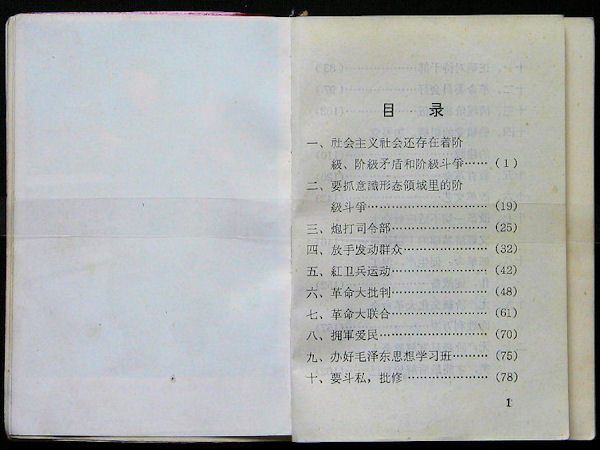 目 录
一、社会主义社会还存在着阶
級、阶級矛盾和阶級斗爭……(1)
二、要抓意識形态領域里的阶
級斗爭……………………(19)
三、炮打司令部………………(25)
四、放手发动群众……………(32)
五、紅卫兵运动………………(42)
六、革命大批判………………(48)
七、革命大联合………………(61)
八、拥軍爱民…………………(70)
九、办好毛泽东思想学习班………(75)
十、要斗私，批修……………(78)
1